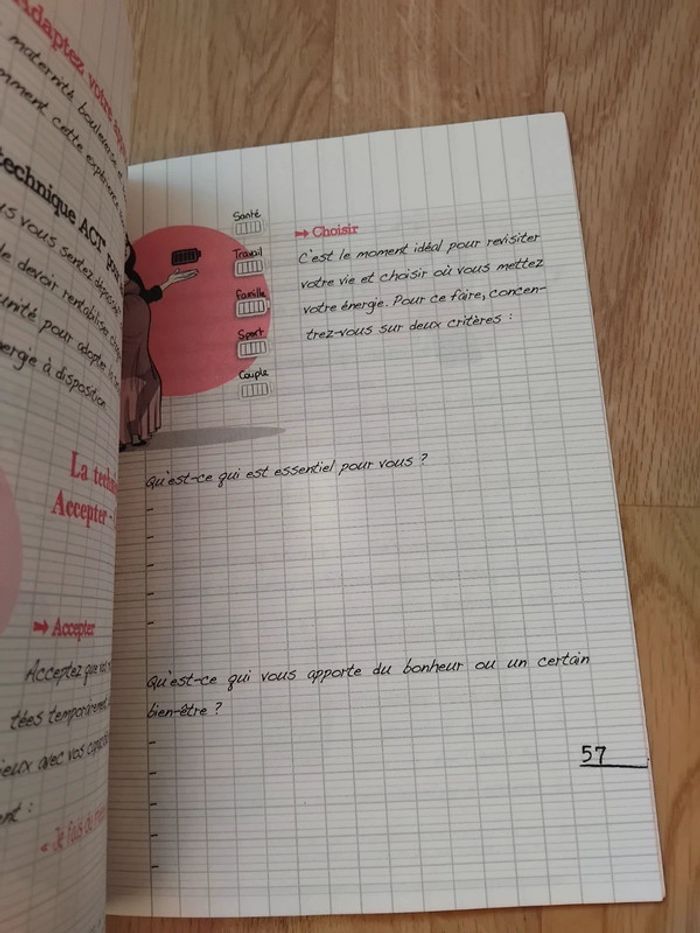 Adaptez votre
maternité bouleverse
comment cette expérience
technique ACT pour
vous vous sentez
le devoir rentabiliser
pour adopter
énergie à disposition.
La
Accepter -
➡ Accepter
Acceptez que
tées temporairement
mieux avec vos
« Je fais du
Santé
Travail
Famille
Sport
Couple
➡ Choisir
C'est le moment idéal pour revisiter
votre vie et choisir où vous mettez
votre énergie. Pour ce faire, concen-
trez-vous sur deux critères :
Qu'est-ce qui est essentiel pour vous ?
-
-
-
-
-
Qu'est-ce qui vous apporte du bonheur ou un certain
bien-être ?
-
-
-
-
-
57